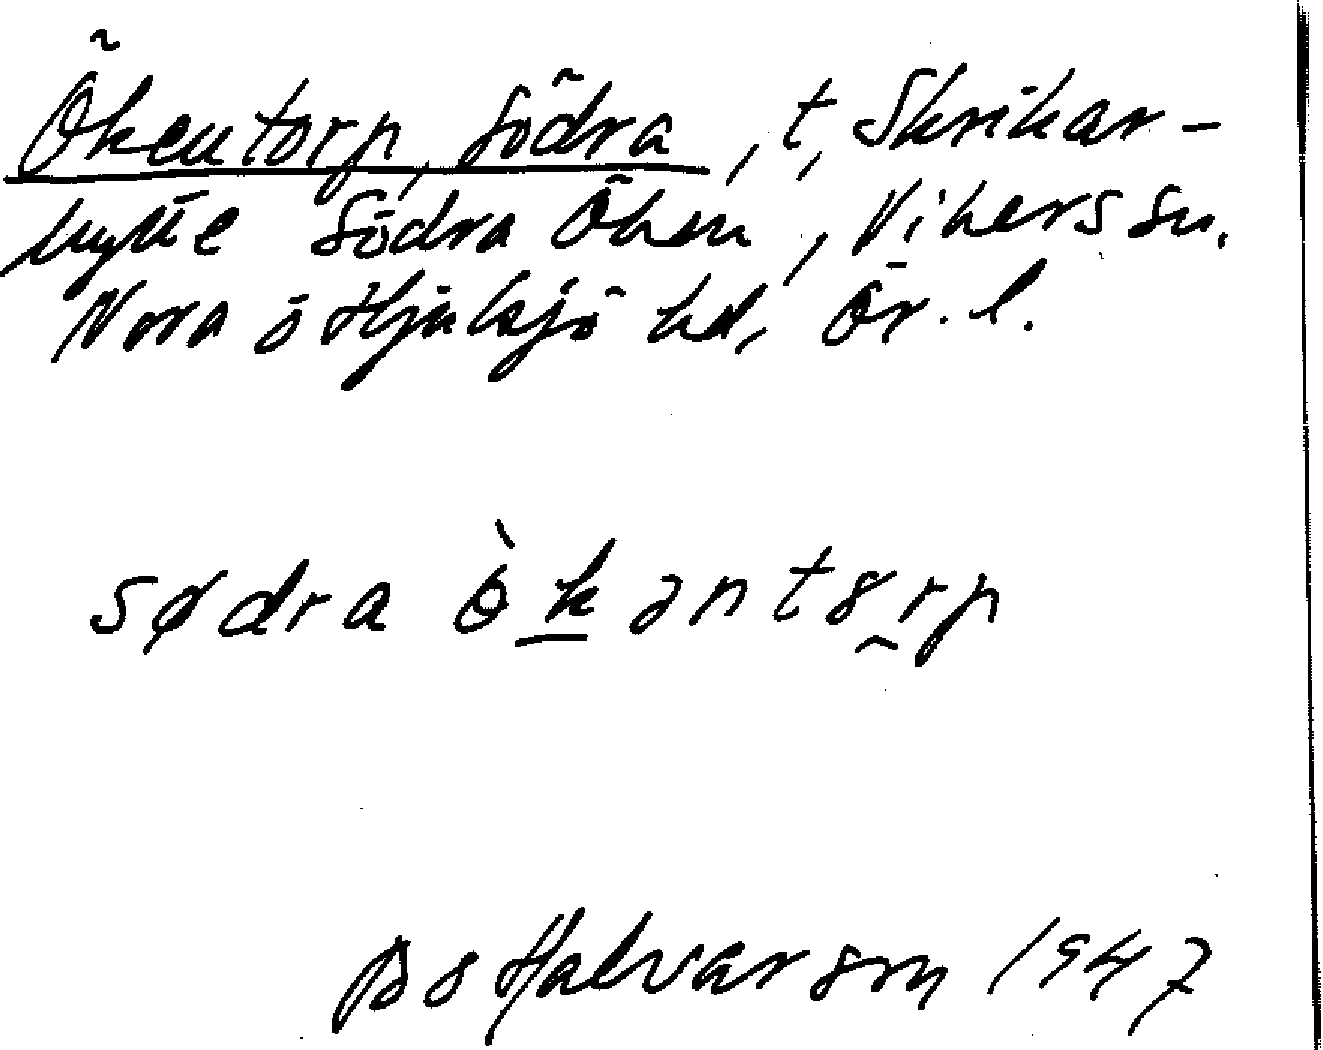 Ökentorp, Södra, t, Skrikar-
hytte Södra Öken, Vikers sn.
Nora o Hjulsjö hd, Ör. l.
sødra ö̀kəntɷrp
Bo Halvarson 1947